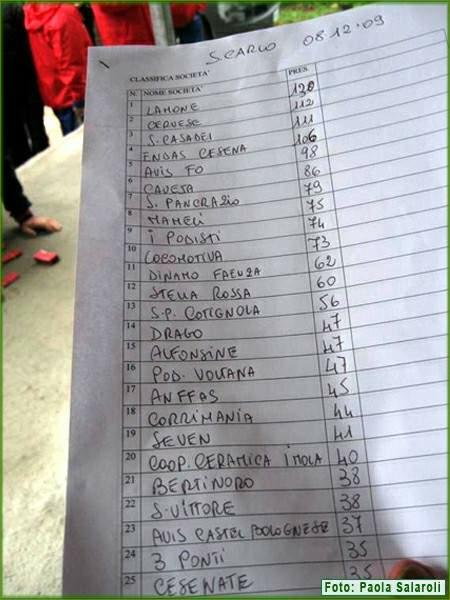 S. CARLO 08.12.09
CLASSIFICA SOCIETA' PRES.
N. NOME SOCIETA' 130
1 LAMONE 112
2 CERVESE 111
3 S. CASADEI 106
4 ENDAS CESENA 98
5 AVIS FO 86
6 CAVEJA 79
7 S. PANCRAZIO 75
8 MAMELI 74
9 I PODISTI 73
10 LOCOMOTIVA 62
11 DINAMO FAENZA 60
12 STELLA ROSSA 56
13 S.P. COTIGNOLA 47
14 DRAGO 47
15 ALFONSINE 47
16 POD. VOLTANA 45
17 ANFFAS 44
18 CORRIMANIA 41
19 SEVEN 40
20 COOP. CERAMICA IMOLA 38
21 BERTINORO 38
22 S. VITTORE 37
23 AVIS CASTEL BOLOGNESE 35
24 3 PONTI 35
25 CESENATE
Foto: Paola Salaroli